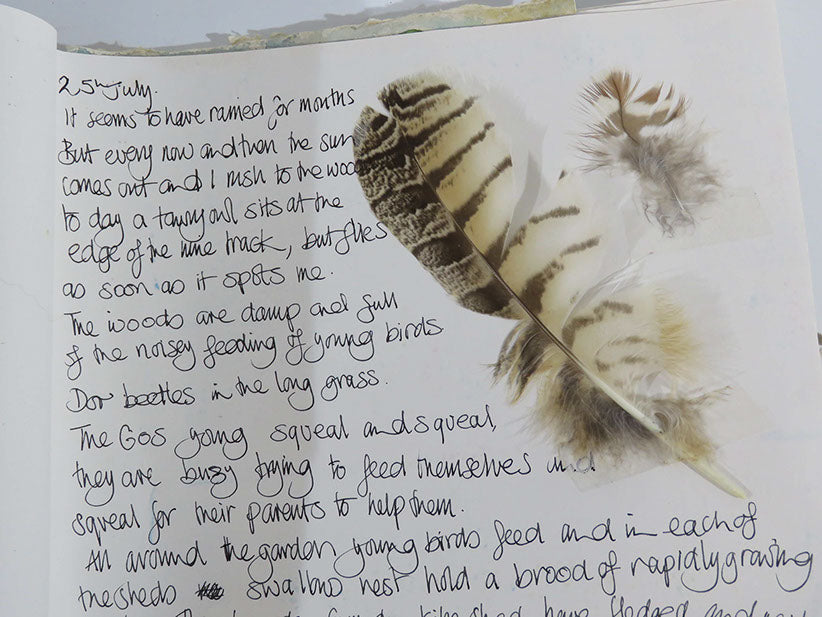 25th July.
It seems to have rained for months
But every now and then the sun
comes out and I rush to the wood
to day a tawny owl sits at the
edge of the mine track, but flies
as soon as it spots me.
The woods are damp and full
of the noisey feeding of young birds
Dor beetles in the long grass.
The Gos young squeal and squeal,
they are busy trying to feed themselves and
squeal for their parents to help them.
All around the garden young birds feed and in each of
the sheds swallows nest hold a brood of rapidly growing
have fledged and